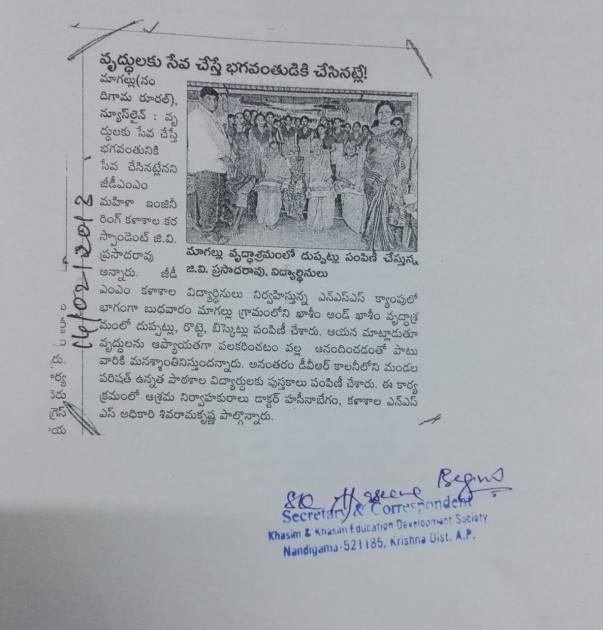 వృద్ధులకు సేవ చేస్తే భగవంతుడికి చేసినట్లే!
మాగల్లు(నం
దిగామ రూరల్),
న్యూస్‌లైన్ : వృ
ద్ధులకు సేవ చేస్తే
భగవంతునికి
సేవ చేసినట్లేనని
జీడీఎంఎం
మహిళా ఇంజినీ
రింగ్ కళాశాల కర
స్పాండెంట్ జి.వి.
ప్రసాదరావు
అన్నారు. జీడీ
ఎంఎం కళాశాల విద్యార్థినులు నిర్వహిస్తున్న ఎన్ఎస్ఎస్ క్యాంపులో
భాగంగా బుధవారం మాగల్లు గ్రామంలోని ఖాశీం అండ్ ఖాశీం వృద్ధాశ్ర
మంలో దుప్పట్లు, రొట్టె, బిస్కెట్లు పంపిణీ చేశారు. ఆయన మాట్లాడుతూ
వృద్ధులను ఆప్యాయతగా పలకరించటం వల్ల ఆనందించడంతో పాటు
వారికి మనశ్శాంతినిస్తుందన్నారు. అనంతరం డీవీఆర్ కాలనీలోని మండల
పరిషత్ ఉన్నత పాఠశాల విద్యార్థులకు పుస్తకాలు పంపిణీ చేశారు. ఈ కార్య
క్రమంలో ఆశ్రమ నిర్వాహకురాలు డాక్టర్ హసీనాబేగం, కళాశాల ఎన్ఎస్
ఎస్ అధికారి శివరామకృష్ణ పాల్గొన్నారు.
మాగల్లు వృద్ధాశ్రమంలో దుప్పట్లు పంపిణీ చేస్తున్న
జి.వి. ప్రసాదరావు, విద్యార్థినులు
14/02/2013
Haseena Begum
Secretary & Correspondent
Khasim & Khasim Education Development Society
Nandigama-521185, Krishna Dist. A.P.